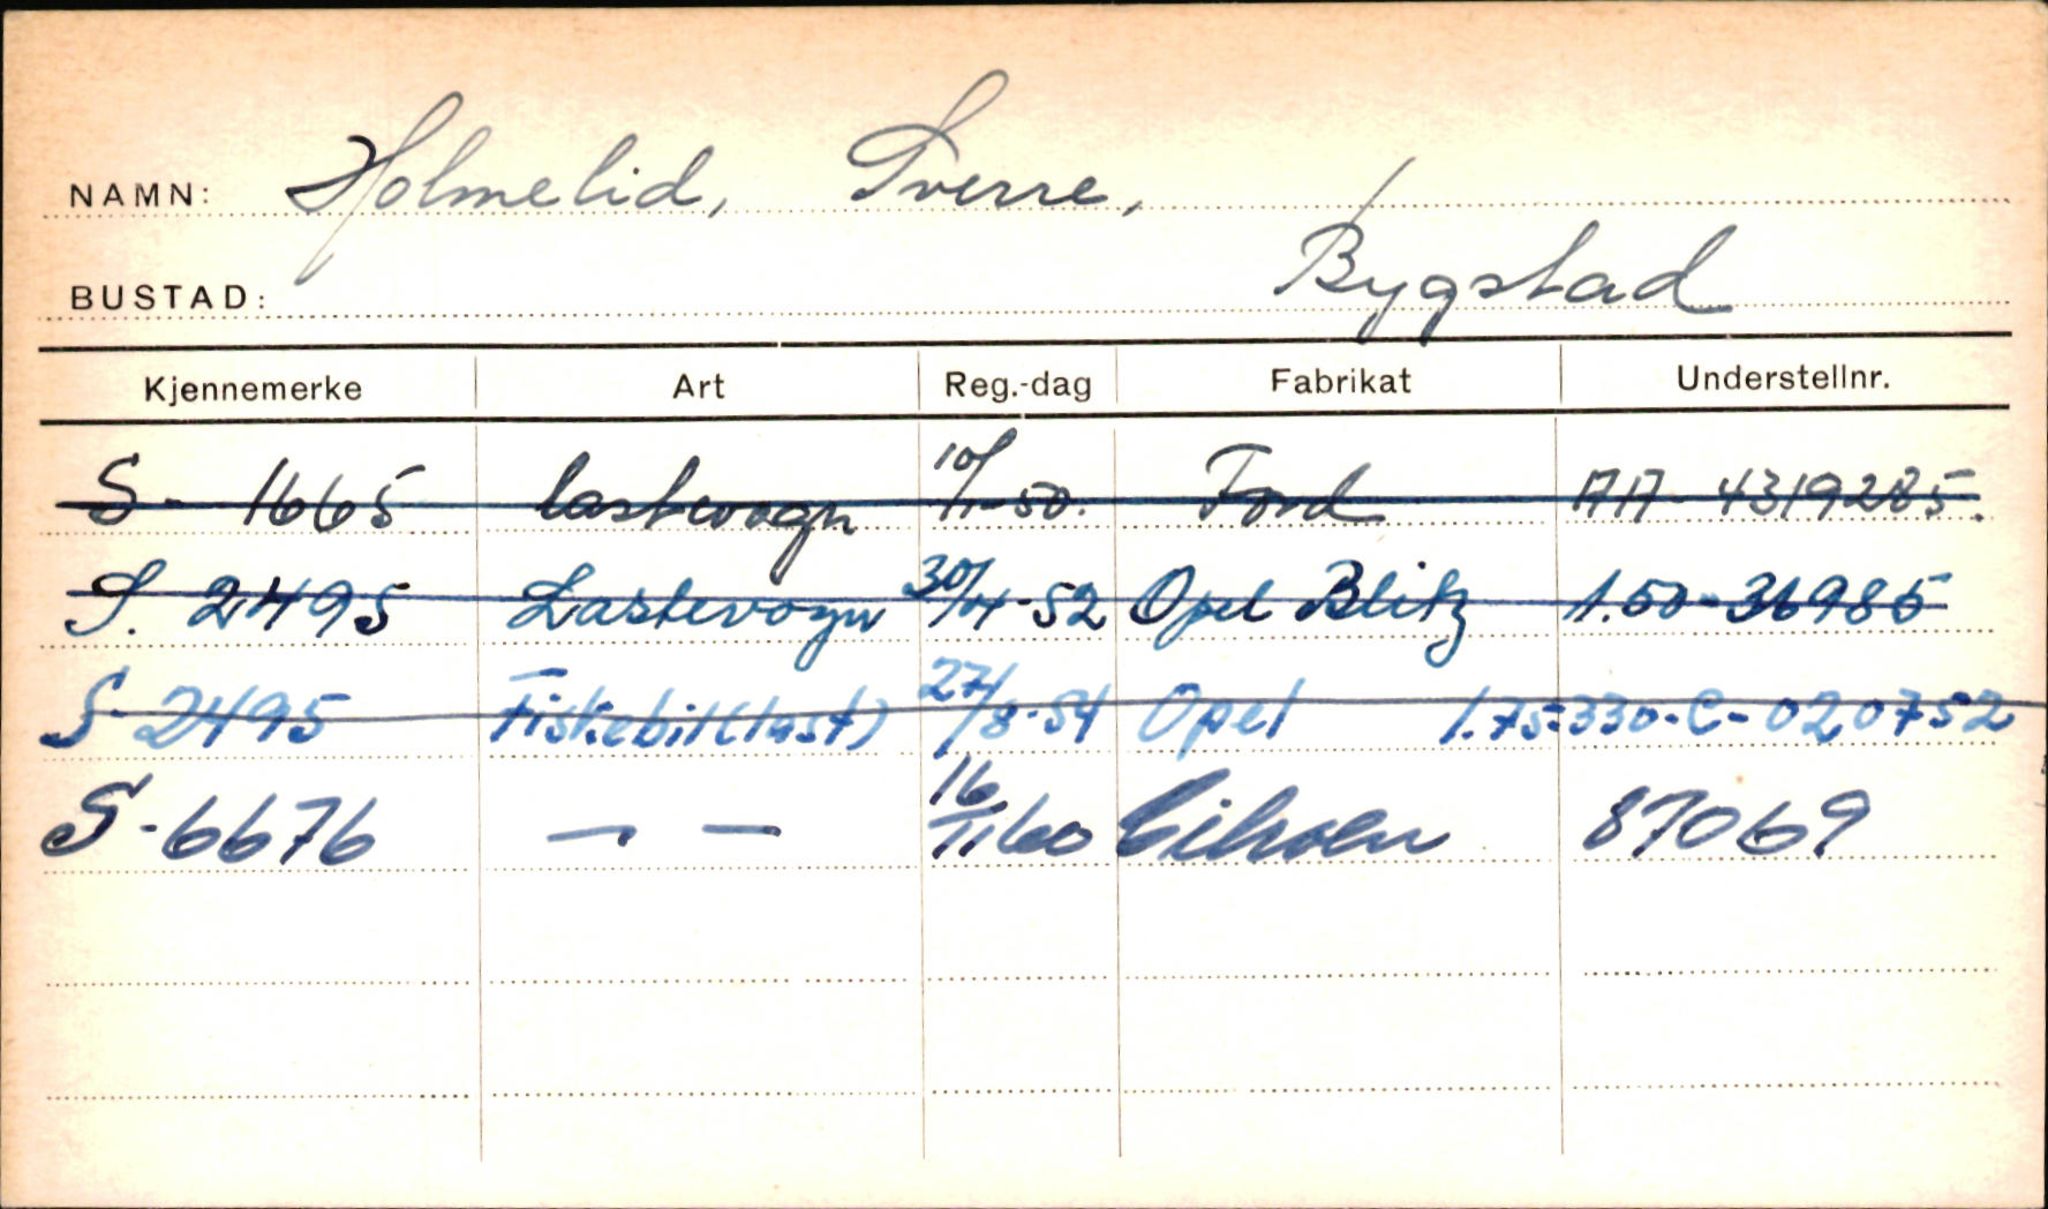 NAMN: Holmelid, Sverre,
BUSTAD: Bygstad
Kjennemerke Art Reg.-dag Fabrikat Understellnr.
S- 1665 lastevogn 10/11-50. Ford AA- 4319285.
S. 2495 Lastevogn 30/04-52 Opel Blitz 1.50-36985
S-2495 Fiskebil(last) 27/8-54 Opel 1.75-330-C-020752
S-6676 — — 16/11 60 Citroen 87069